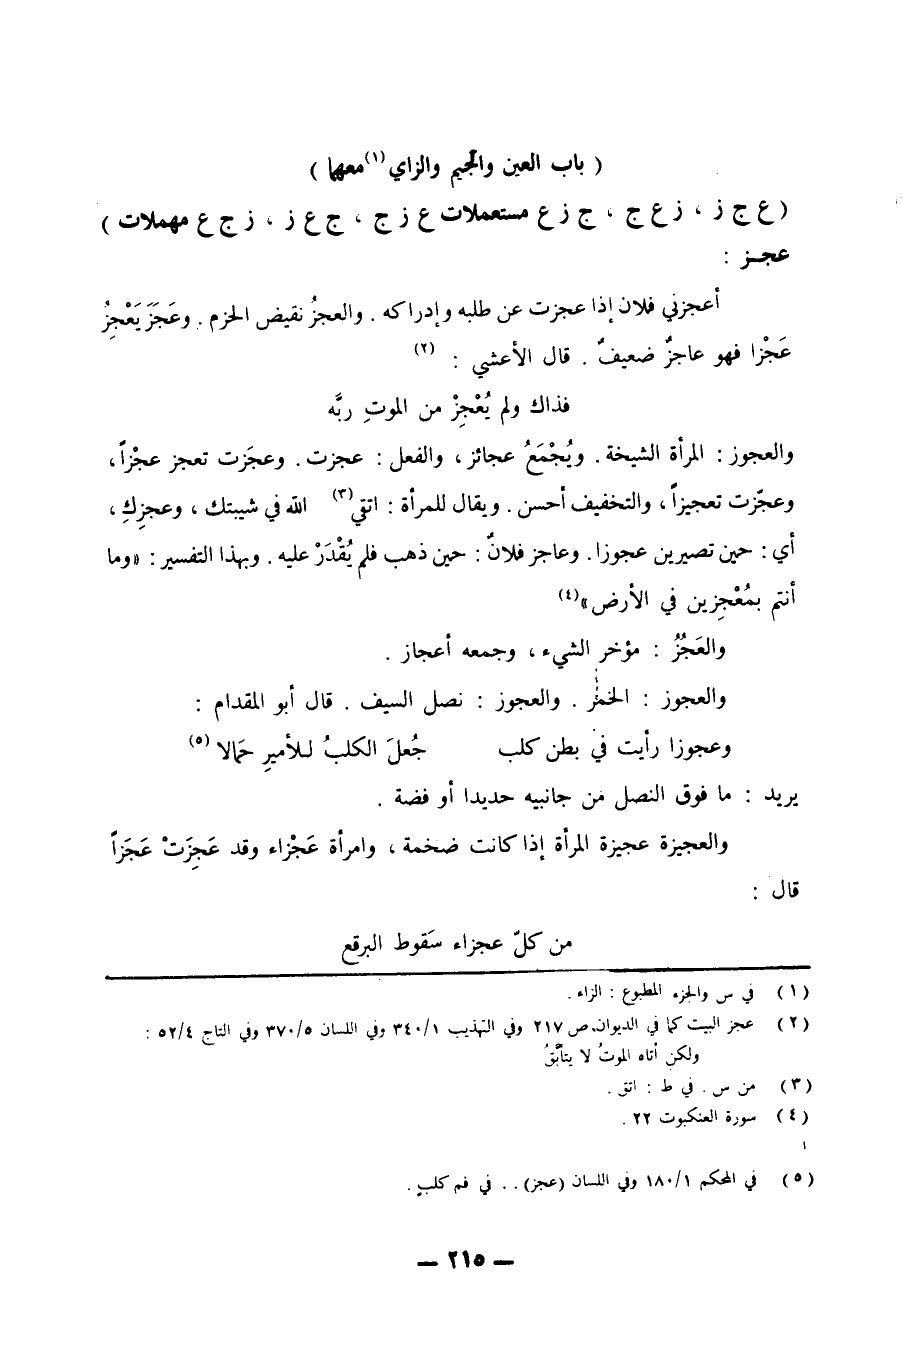 ( باب العين والجيم والزاي (١) معهما )
( ع ج ز ، ز ع ج ، ج ز ع مستعملات ع ز ج ، ج ع ز ، ز ج ع مهملات )
عجـز :
أعجزني فلان إذا عجزت عن طلبه وإدراكه . والعجزُ نقيض الحزم . وعَجَزَ يَعْجِزُ
عَجْزا فهو عاجزٌ ضعيفٌ . قال الأعشي : (٢)
فذاك ولم يُعْجِزْ من الموتِ ربَّه
والعجوز : المرأة الشيخة . ويُجْمَعُ عجائز ، والفعل : عجزت . وعجَزت تعجز عجْزاً ،
وعجّزت تعجيزاً ، والتخفيف أحسن . ويقال للمرأة : اتقي (٣) الله في شيبتك ، وعجزِكِ ،
أي : حين تصيرين عجوزا . وعاجز فلانٌ : حين ذهب فلم يُقْدَرْ عليه . وبهذا التفسير : «وما
أنتم بمُعْجزين في الأرض» (٤)
والعَجُزُ : مؤخر الشيء ، وجمعه أعجاز .
والعجوز : الخمر . والعجوز : نصل السيف . قال أبو المقدام :
وعجوزا رأيت في بطن كلب جُعلَ الكلبُ للأميرِ حمالا (٥)
يريد : ما فوق النصل من جانبيه حديدا أو فضة .
والعجيزة عجيزة المرأة إذا كانت ضخمة ، وامرأة عَجْزاء وقد عَجِزَتْ عَجَزاً
قال :
من كلّ عجزاء سَقوط البرقع
(١) في س والجزء المطبوع : الزاء .
(٢) عجز البيت كما في الديوان ص ٢١٧ وفي التهذيب ٣٤٠/١ وفي اللسان ٣٧٠/٥ وفي التاج ٥٢/٤ :
ولكن أتاه الموتُ لا يتأبّقُ
(٣) من س . في ط : اتق .
(٤) سورة العنكبوت ٢٢ .
(٥) في المحكم ١٨٠/١ وفي اللسان (عجز) . . في فم كلبٍ .
— ٢١٥ —